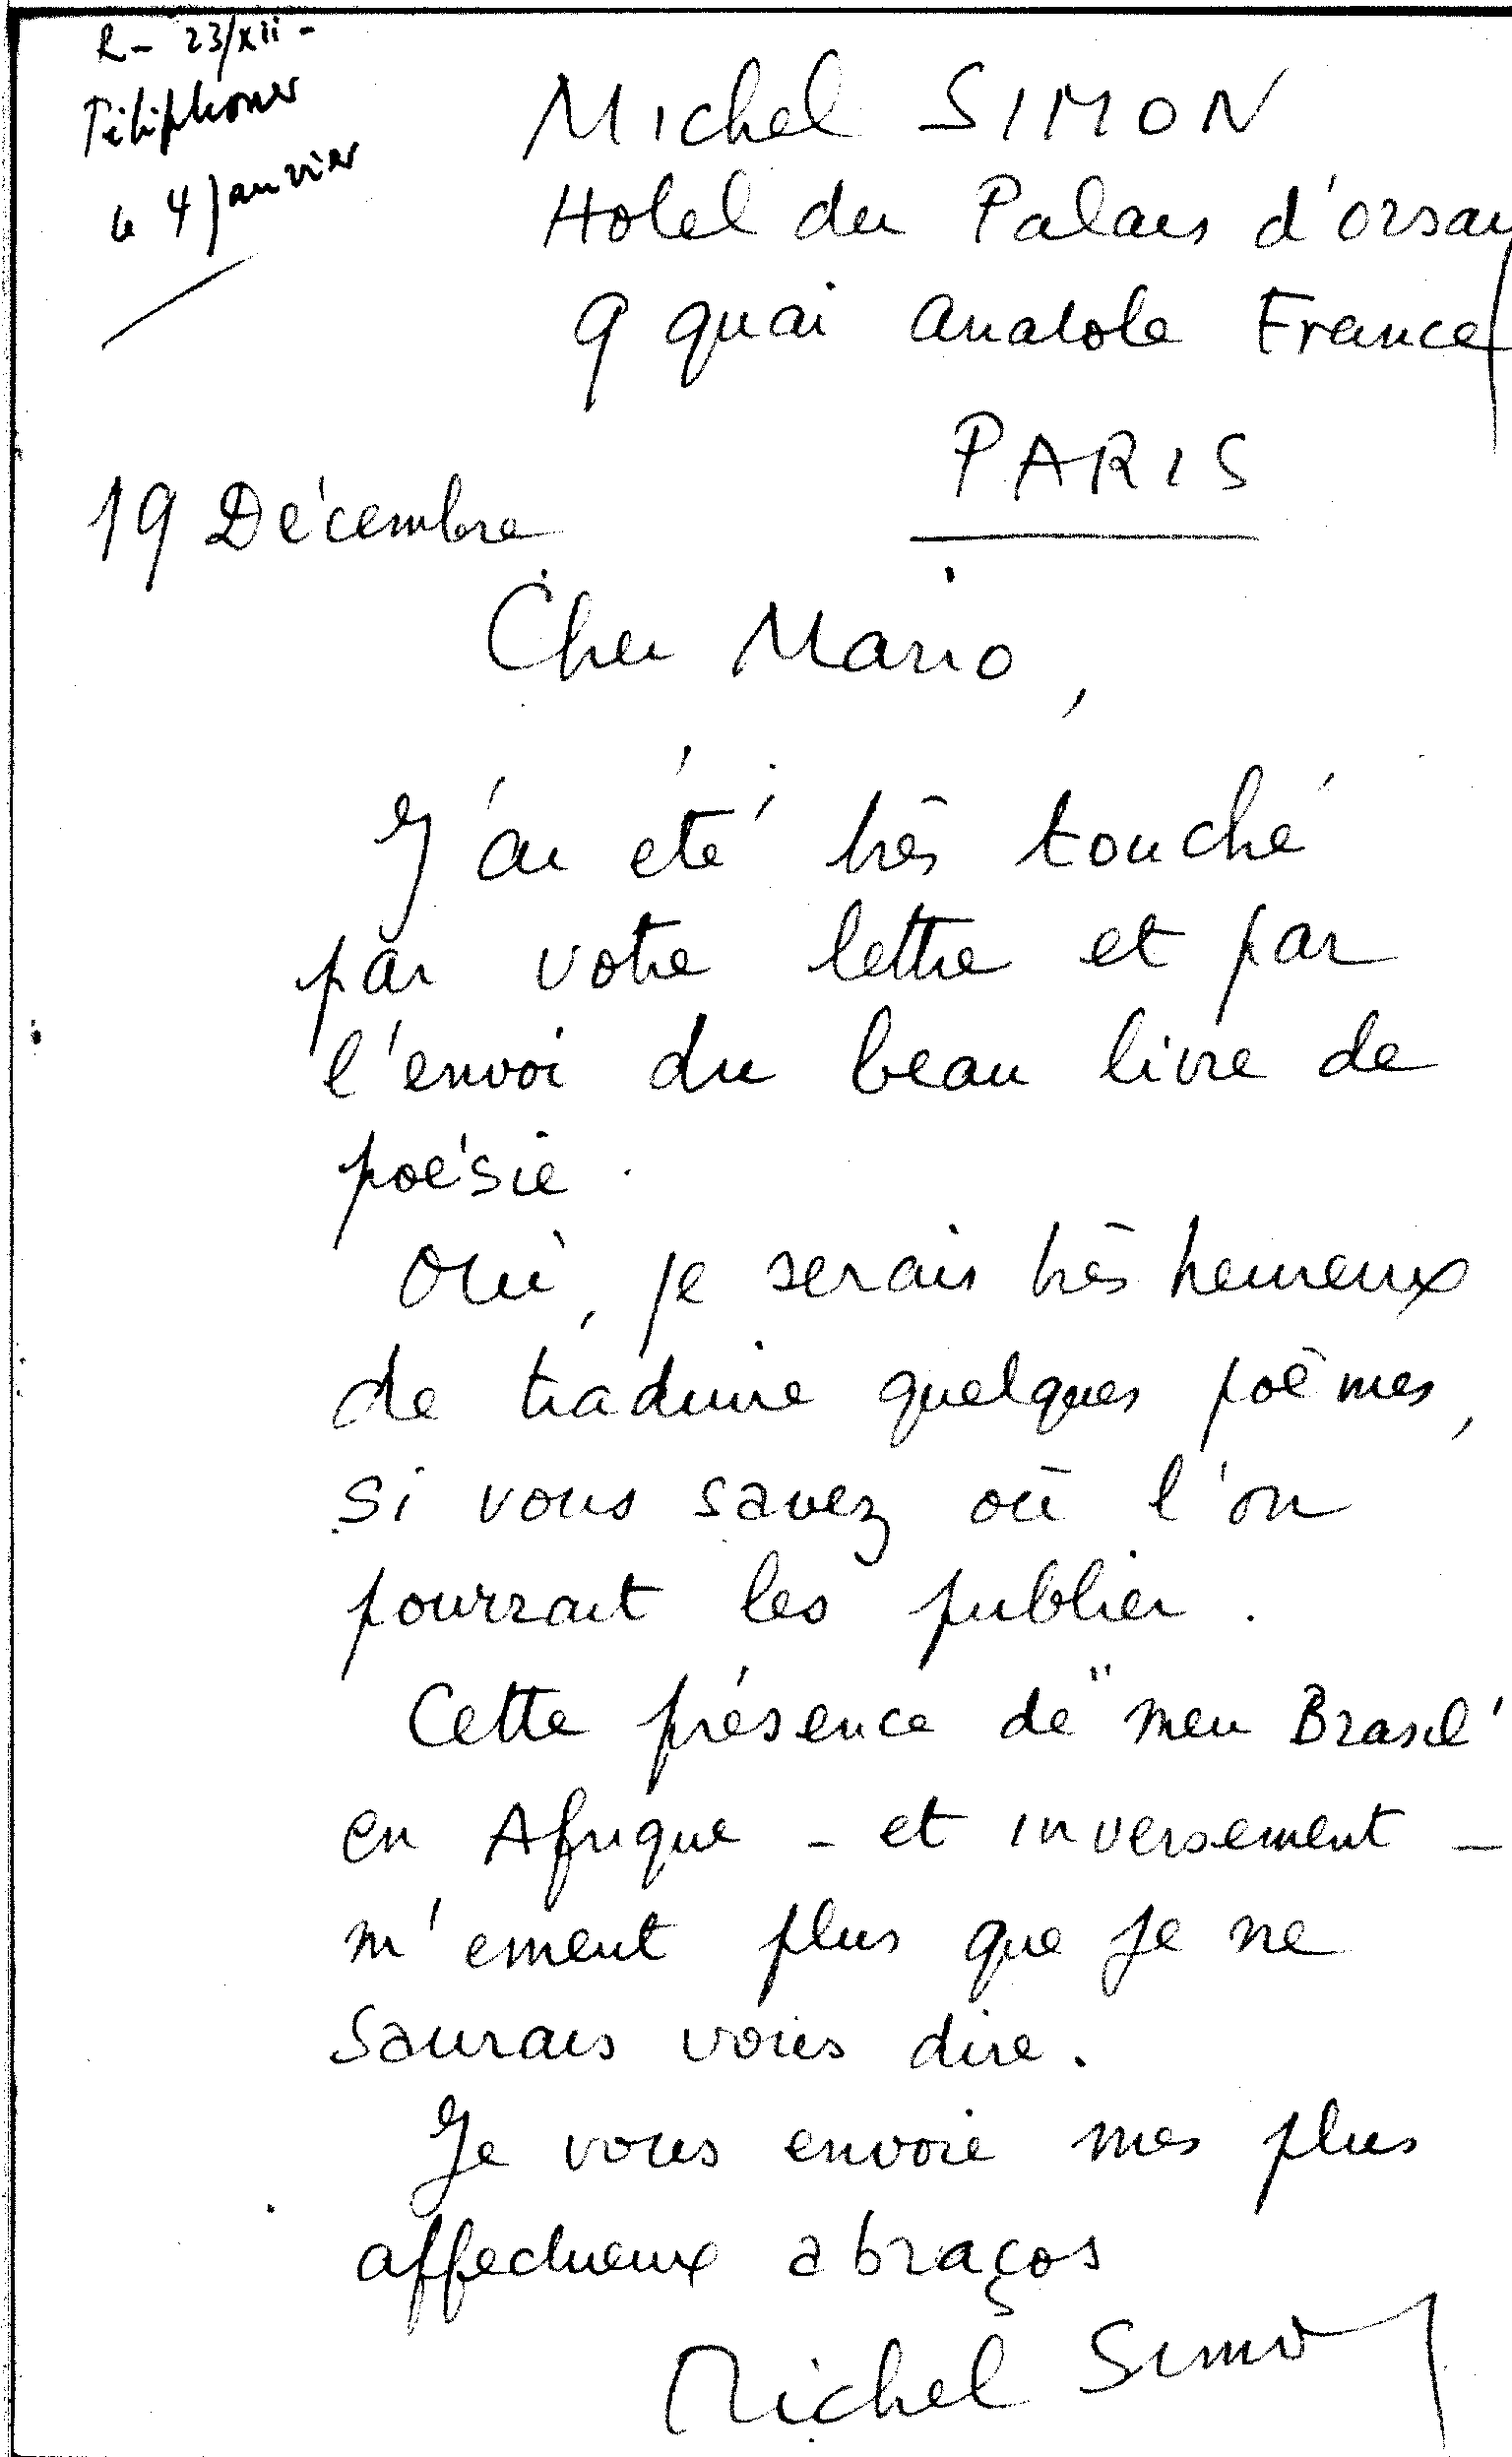 R - 23/XII -
Téléphoner
le 4 janvier
Michel SIMON
Hotel du Palais d'Orsay
9 quai Anatole France
PARIS
19 Décembre
Cher Mario,
J'ai été très touché
par votre lettre et par
l'envoi du beau livre de
poésie.
Oui, je serais très heureux
de traduire quelques poèmes,
si vous savez où l'on
pourrait les publier.
Cette présence de "meu Brasil"
en Afrique - et inversement -
m'émeut plus que je ne
saurais vous dire.
Je vous envoie mes plus
affectueux abraços
Michel Simon